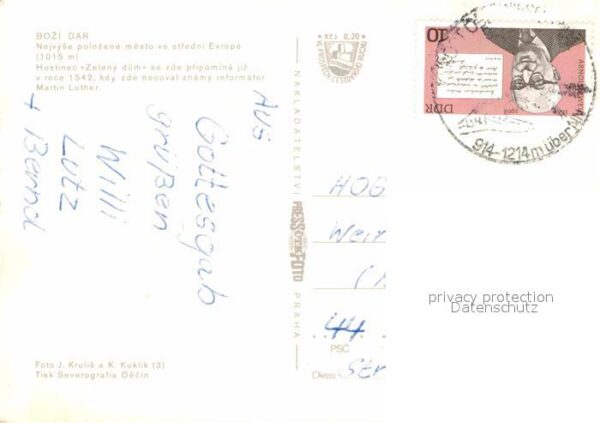 BOŽÍ DAR
Nejvýše položené město ve střední Evropě
(1015 m)
Hostinec «Zelený dům» se zde připomíná již
v roce 1542, kdy zde nocoval známý reformátor
Martin Luther.
Aus
Gottesgab
grüßen
Willi
Lutz
+ Bernd
Foto J. Krulíš a K. Kuklík (3)
Tisk Severografia Děčín
0,20
NAKLADATELSTVÍ
PRESSFOTO
PRAHA
HOG
Wei
44
PSČ
Okres
10
DDR
ARNOLD ZWEIG
1968
914-1214m über
privacy protection
Datenschutz